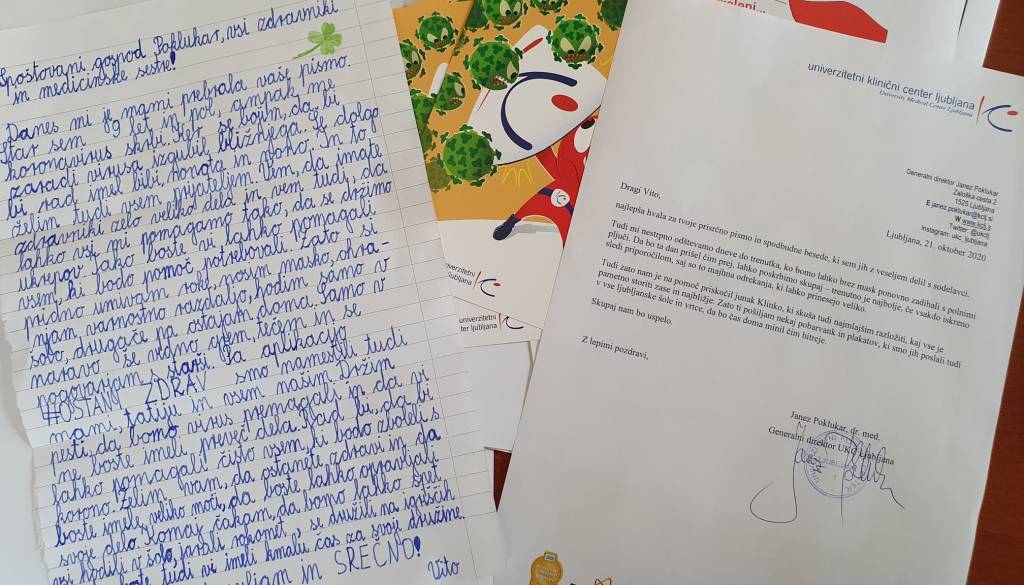 Spoštovani gospod Poklukar, vsi zdravniki
in medicinske sestre!
Danes mi je mami prebrala vaše pismo.
Star sem 9 let in pol, ampak me
koronavirus skrbi. Ker se bojim, da bi
zaradi virusa izgubil bližnjega. Še dolgo
bi rad imel bibi, nonota in nono. In to
želim tudi vsem prijateljem. Vem, da imate
zdravniki zelo veliko dela in vem tudi, da
lahko vsi mi pomagamo tako, da se držimo
ukrepov. Tako boste vi lahko pomagali
vsem, ki bodo pomoč potrebovali. Zato si
pridno umivam roke, nosim masko, ohra-
njam varnostno razdaljo, hodim samo v
šolo, drugače pa ostajam doma. Samo v
naravo se vedno grem, tečem in se
pogovarjam s starši. Pa aplikacijo
#OSTANI ZDRAV smo namestili tudi
mami, tatiju in vsem našim. Držim
pesti, da bomo virus premagali in da vi
ne boste imeli preveč dela. Rad bi, da bi
lahko pomagali čisto vsem, ki bodo zboleli s
korono. Želim vam, da ostanete zdravi in da
boste imele veliko moči, da boste lahko opravljali
svoje delo. Komaj čakam, da bomo lahko spet
vsi hodili v šolo, igrali rokomet, se družili na igriščih
tudi vi imeli kmalu čas za svoje družine.
in SREČNO!
Vito
univerzitetni
ter ljubljana
univerzitetni klinični center ljubljana
University Medical Centre Ljubljana
Generalni direktor Janez Poklukar
Zaloška cesta 2
1525 Ljubljana
E janez.poklukar@kclj.si
W www.kclj.si
Twitter: @ukclj
Instagram: ukc_ljubljana
Ljubljana, 21. oktober 2020
Dragi Vito,
najlepša hvala za tvoje prisrčno pismo in spodbudne besede, ki sem jih z veseljem delil s sodelavci.
Tudi mi nestrpno odštevamo dneve do trenutka, ko bomo lahko brez mask ponovno zadihali s polnimi
pljuči. Da bo ta dan prišel čim prej, lahko poskrbimo skupaj – trenutno je najbolje, če vsakdo iskreno
sledi priporočilom, saj so to majhna odrekanja, ki lahko prinesejo veliko.
Tudi zato nam je na pomoč priskočil junak Klinko, ki skuša tudi najmlajšim razložiti, kaj vse je
pametno storiti zase in najbližje. Zato ti pošiljam nekaj pobarvank in plakatov, ki smo jih poslali tudi
v vse ljubljanske šole in vrtce, da bo čas doma minil čim hitreje.
Skupaj nam bo uspelo.
Z lepimi pozdravi,
Janez Poklukar, dr. med.
Generalni direktor UKC Ljubljana